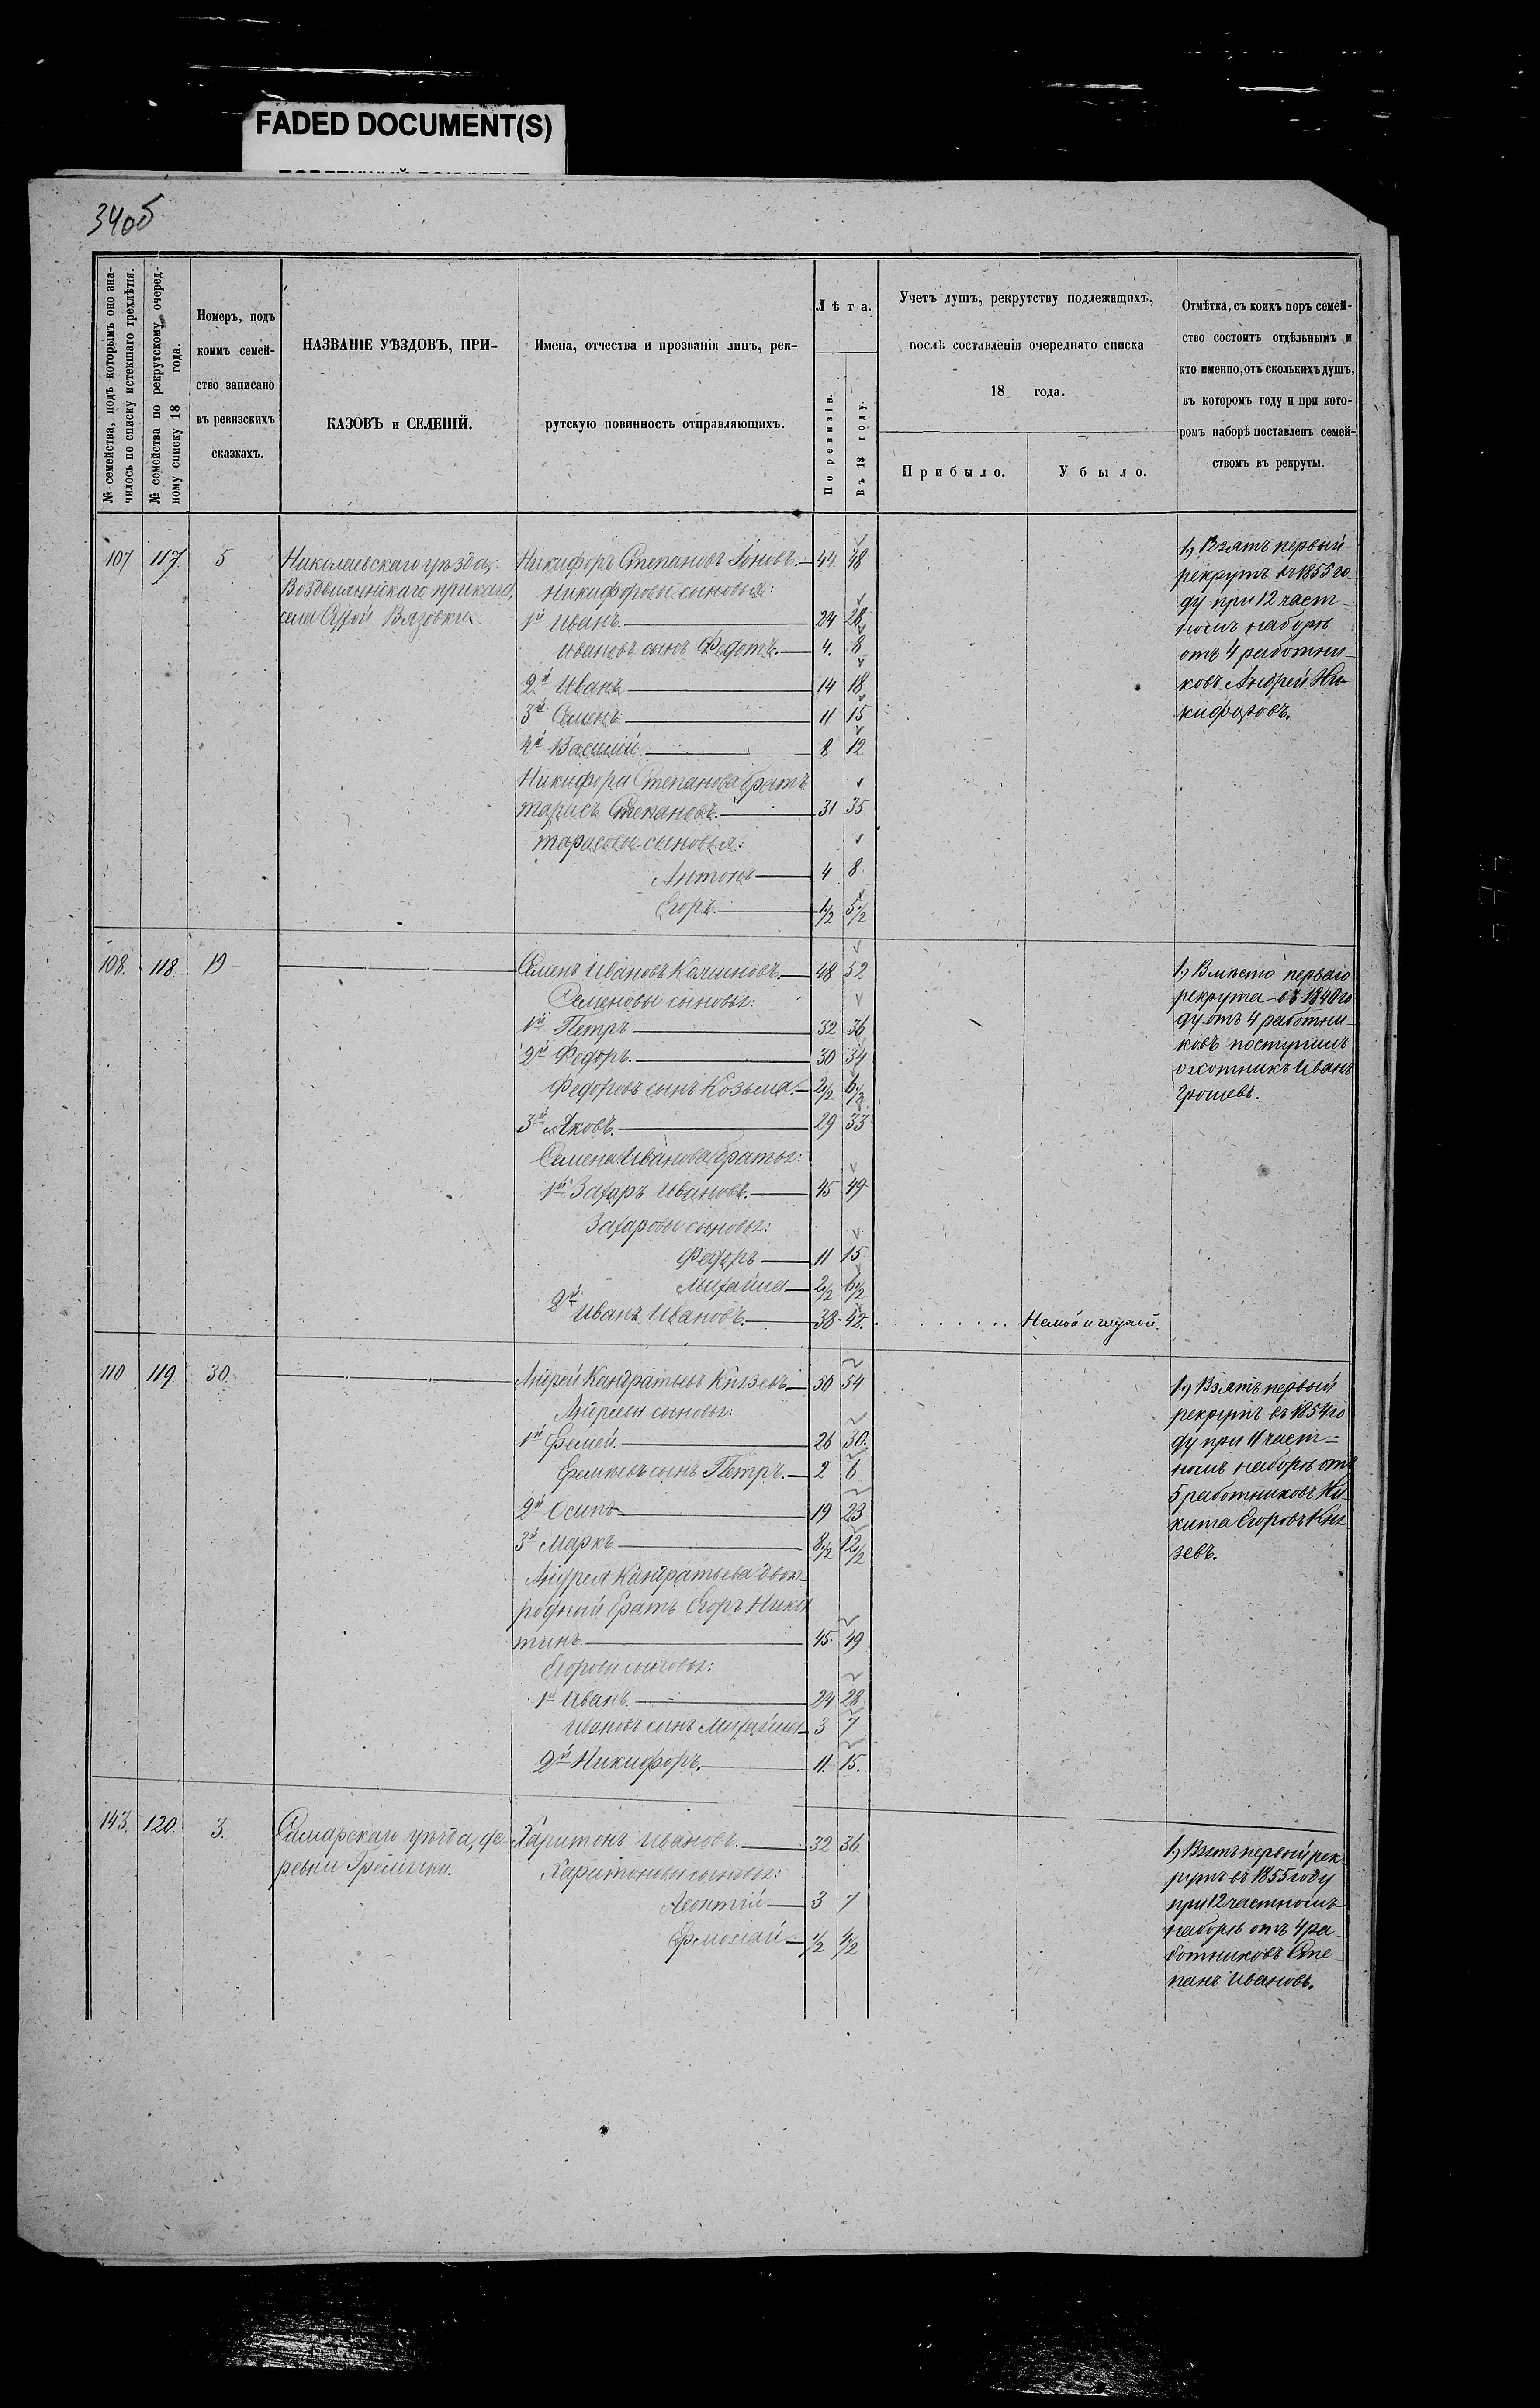 FADED DOCUMENT(S)
34об
№ семейства, подъ которымъ оно зна-
чилось по списку истекшаго трехлѣтія.
№ семейства по рекрутскому очеред-
ному списку 18 года.
Номеръ, подъ
коимъ семей-
ство записано
въ ревизскихъ
сказкахъ.
НАЗВАНІЕ УѢЗДОВЪ, ПРИ-
КАЗОВЪ и СЕЛЕНІЙ.
Имена, отчества и прозванія лицъ, рек-
рутскую повинность отправляющихъ.
Лѣта.
По ревизіи.
Въ 18 году.
Учетъ душъ, рекрутству подлежащихъ,
послѣ составленія очереднаго списка
18 года.
Прибыло.
Убыло.
Отмѣтка, съ коихъ поръ семей-
ство состоитъ отдѣльнымъ и
кто именно, отъ сколькихъ душъ,
въ которомъ году и при кото-
ромъ наборѣ поставленъ семей-
ствомъ въ рекруты.
107 117 5
Николаевскаго уѣзда,
приказа,
села Вязовки
Никифоръ Степановъ 44. 48
Никифоровы сыновья:
1й Иванъ. 24 28
Ивановъ сынъ Федотъ. 4. 8
2й Иванъ 14 18
3й Семенъ 11 15
4й Василій 8 12
Никифора Степанова братъ
Тарасъ Степановъ. 31 35
Тарасовы сыновья:
Антонъ 4 8
Егоръ. 1/2 5 1/2
1.) Взятъ первый
рекрутъ въ 1855 го-
ду при 12 част-
номъ наборѣ
отъ 4 работни-
ковъ Андрей Ни-
кифоровъ.
108. 118. 19
Семенъ Ивановъ 48 52
Семеновы сыновья:
1й Петръ 32 36
2й Федоръ. 30 34
Федоровъ сынъ Козьма. 2 1/2 6 1/2
3й Яковъ. 29 33
Семена Иванова братья:
1й Захаръ Ивановъ. 45 49
Захаровы сыновья:
Федоръ 11 15
Михайла 2 1/2 6 1/2
2й Иванъ Ивановъ. 38 42.
Немой и глухой.
1.) Вмѣсто перваго
рекрута въ 1840 го
ду отъ 4 работни-
ковъ поступилъ
охотникъ Иванъ
110 119. 30.
Андрей Кандратьевъ Князевъ 50 54
Андреевы сыновья:
1й Еремей. 26 30.
Еремеевъ сынъ Петръ. 2 6
2й Осипъ 19 23
3й Маркъ. 8 1/2 12 1/2
Андрея Кандратьева двою-
родный братъ Егоръ Ники-
тинъ. 45. 49
Егоровы сыновья:
1й Иванъ. 24 28
Ивановъ сынъ Михайла 3 7
2й Никифоръ. 11. 15.
1.) Взятъ первый
рекрутъ въ 1854 го
ду при 11 част-
номъ наборѣ отъ
5 работниковъ Ни-
кита Егоровъ Кня-
зевъ.
143. 120. 3.
Самарскаго уѣзда, де-
ревни Гремячки.
Харитонъ Ивановъ. 32 36
Харитоновы сыновья:
Леонтій 3 7
Ермолай 1/2 4 1/2
1.) Взятъ первый рек-
рутъ въ 1855 году
при 12 частномъ
наборѣ отъ 4 ра-
ботниковъ Сте-
панъ Ивановъ.